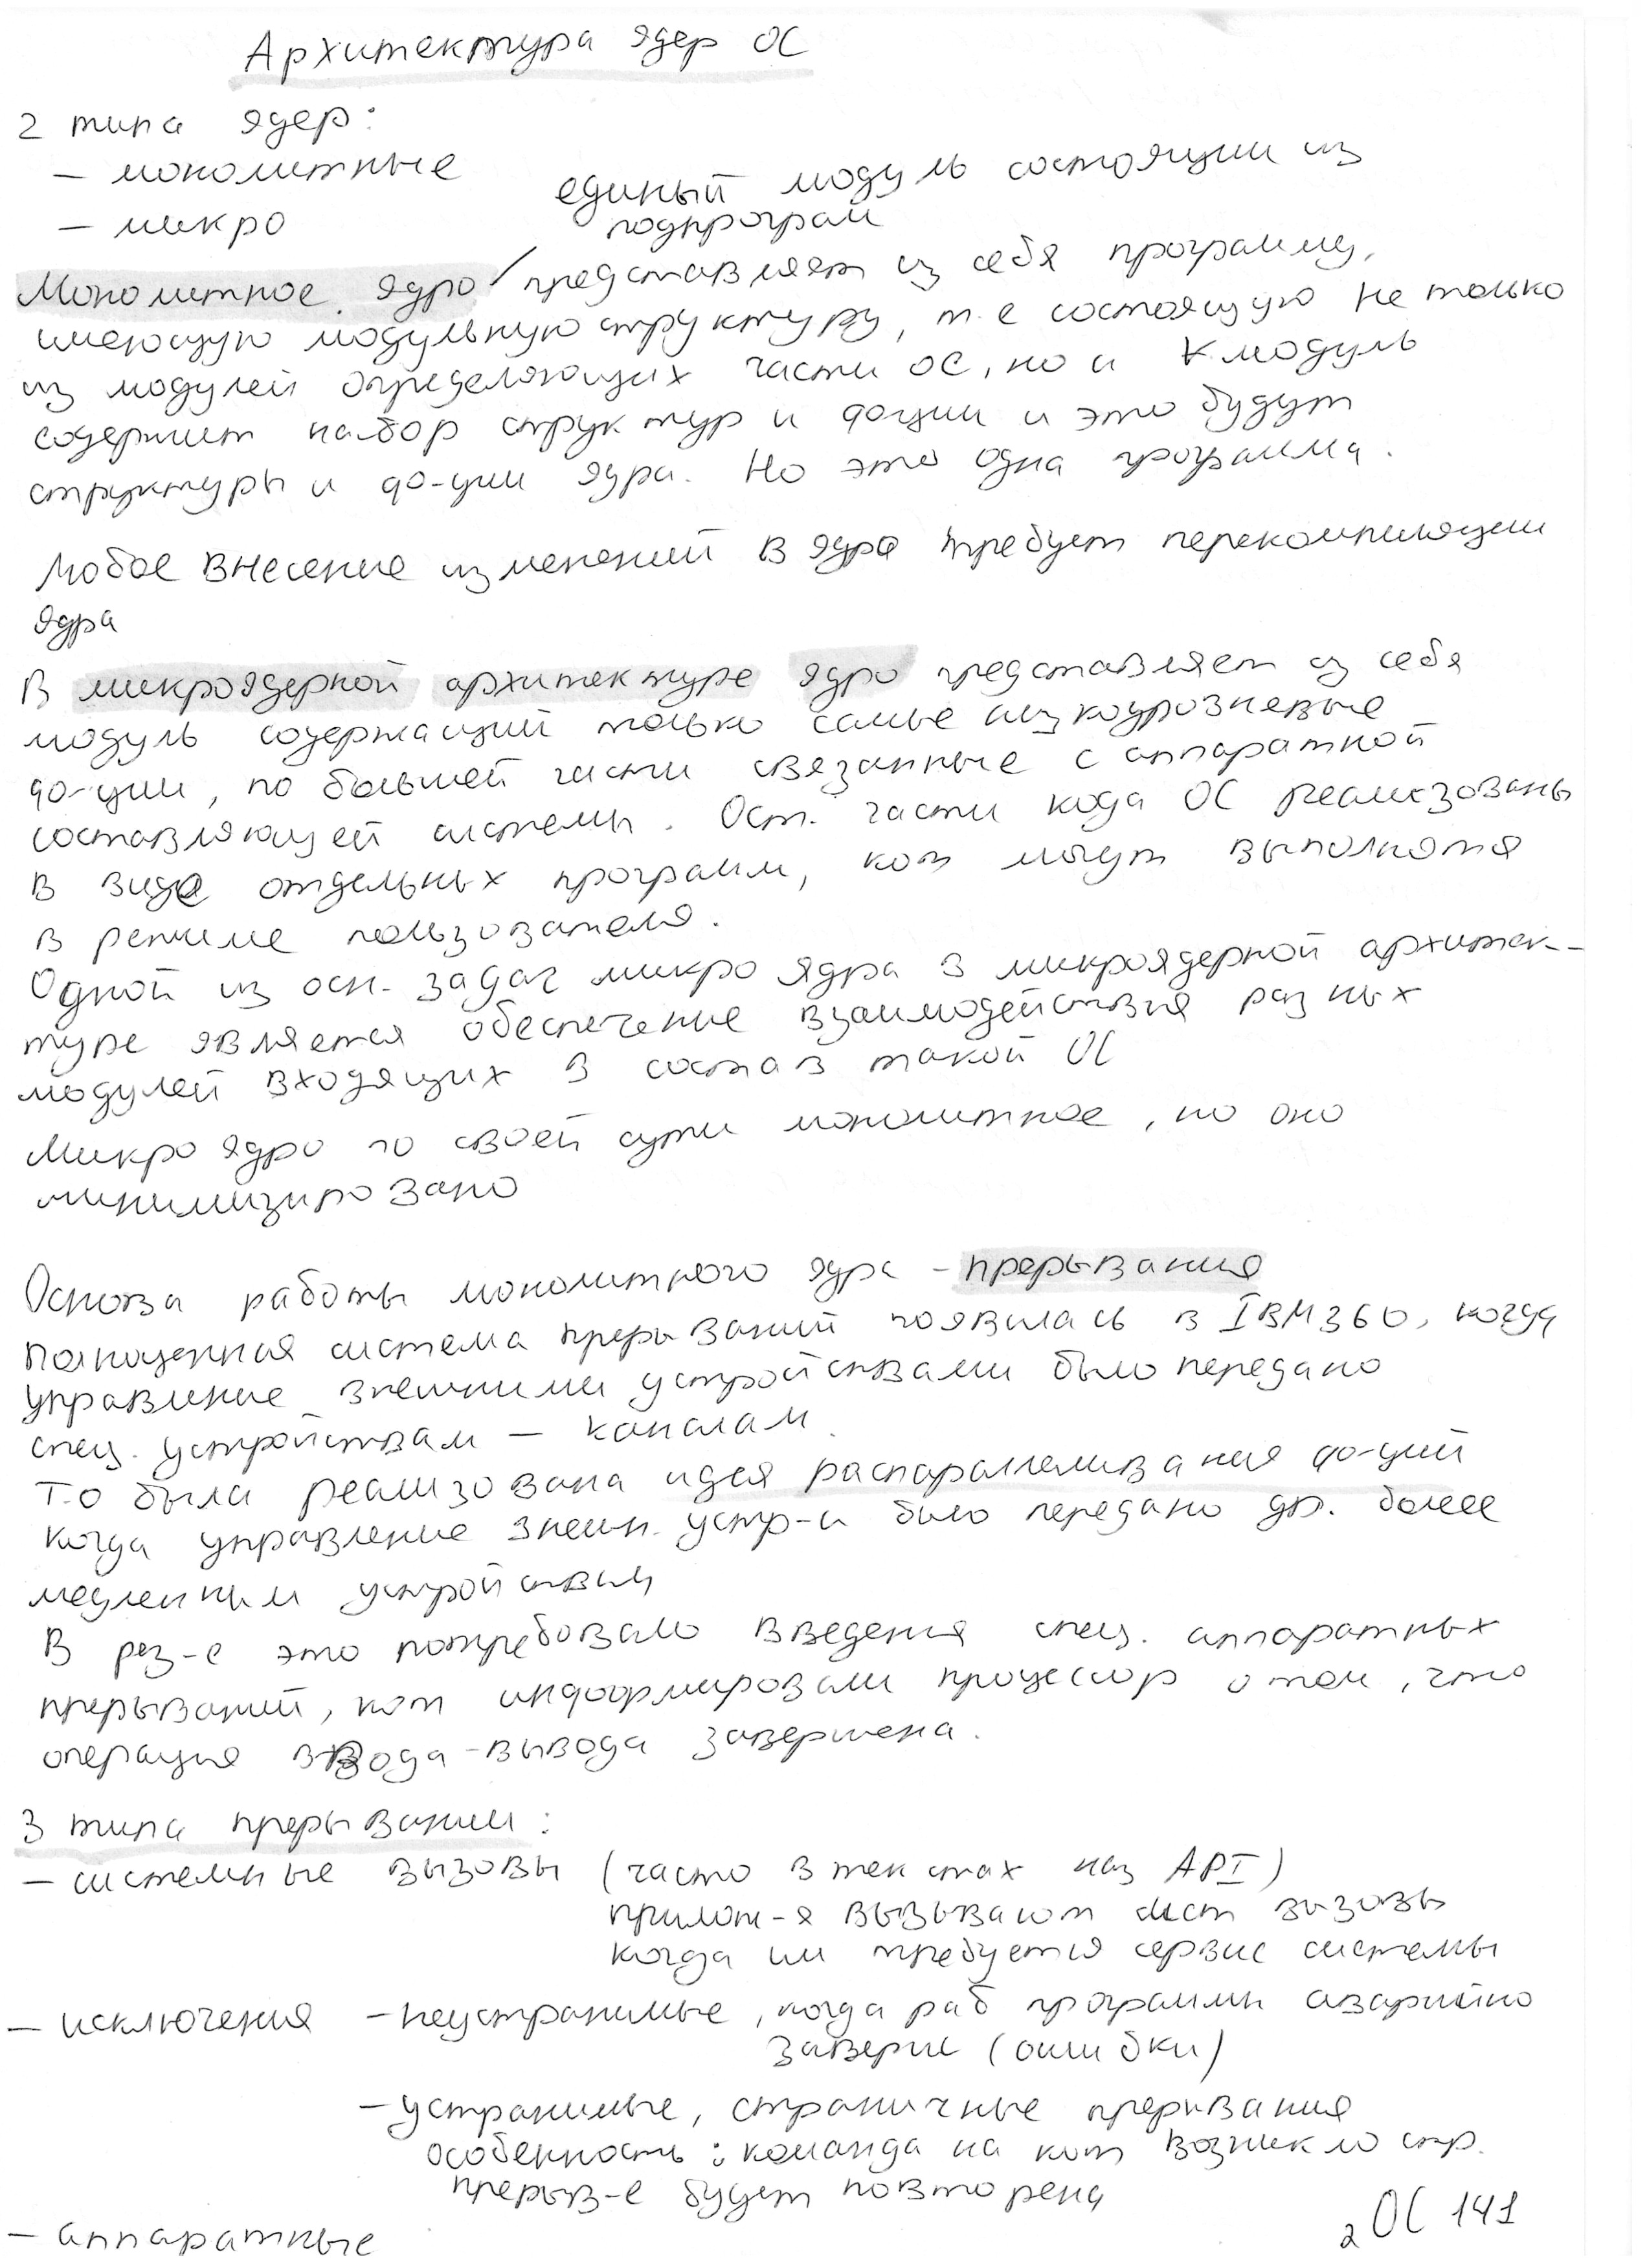 Архитектура ядер ОС
2 типа ядер:
– монолитные
– микро
единый модуль состоящии из
подпрограм
Монолитное ядро / представляет из себя программу,
имеющую модульную структуру, т.е состоящую не только
из модулей определяющих части ОС, но и К модуль
содержит набор структур и ф-ции и это будут
структуры и ф-ции ядра. Но это одна программа.
Любое внесение изменений в ядро требует перекомпиляции
ядра
В микроядерной архитектуре ядро представляет из себя
модуль содержащий только самые низкоуровневые
ф-ции, по большей части связанные с аппаратной
составляющей системы. Ост. части кода ОС реализованы
в виде отдельных программ, кот могут выполнятся
в режиме пользователя.
Одной из осн. задач микро ядра в микроядерной архитек-
туре является обеспечение взаимодействия разных
модулей входящих в состав такой ОС
Микро ядро по своей сути монолитное, но оно
минимизировано
Основа работы монолитного ядра – прерывания
Полноценная система прерываний появилась в IBM360, когда
управление внешними устройствами было передано
спец. устройствам – каналам.
Т.о была реализована идея распараллеливания ф-ций
когда управление внешн. устр-и было передано др. более
медленным устройствам
В рез-е это потребовало введения спец. аппаратных
прерываний, кот информировали процессор о том, что
операция ввода-вывода завершена.
3 типа прерывании:
– системные вызовы (часто в текстах наз API)
прилож-я вызывают сист вызовы
когда им требуется сервис системы
– исключения – неустранимые, когда раб программы аварийно
заверш (ошибки)
– устранимые, страничные прерывания
особенность: команда на кот возникло стр.
прерыв-е будет повторена
– аппаратные
2 ОС 141